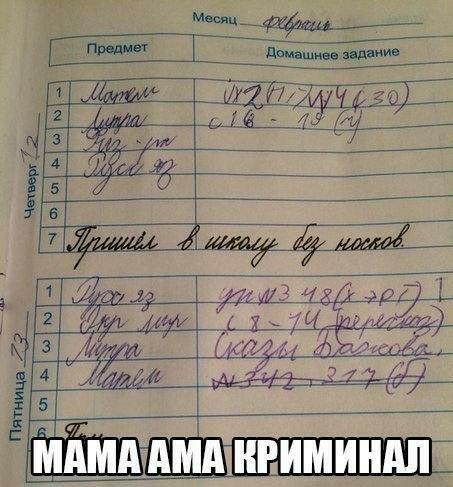 Месяц февраль
Предмет Домашнее задание
Четверг 12
1 Матем
2 Литра с 16 - 19 (ч)
3 Физ-ра
4 Русс яз
5
6
7 Пришёл в школу без носков.
Пятница 13
1 Русс яз упр №3 48
2 Окр мир с 8 - 14 (пересказ)
3 Литра Сказы Бажова.
4 Матем №342, 317 (б)
5
6
МАМА АМА КРИМИНАЛ